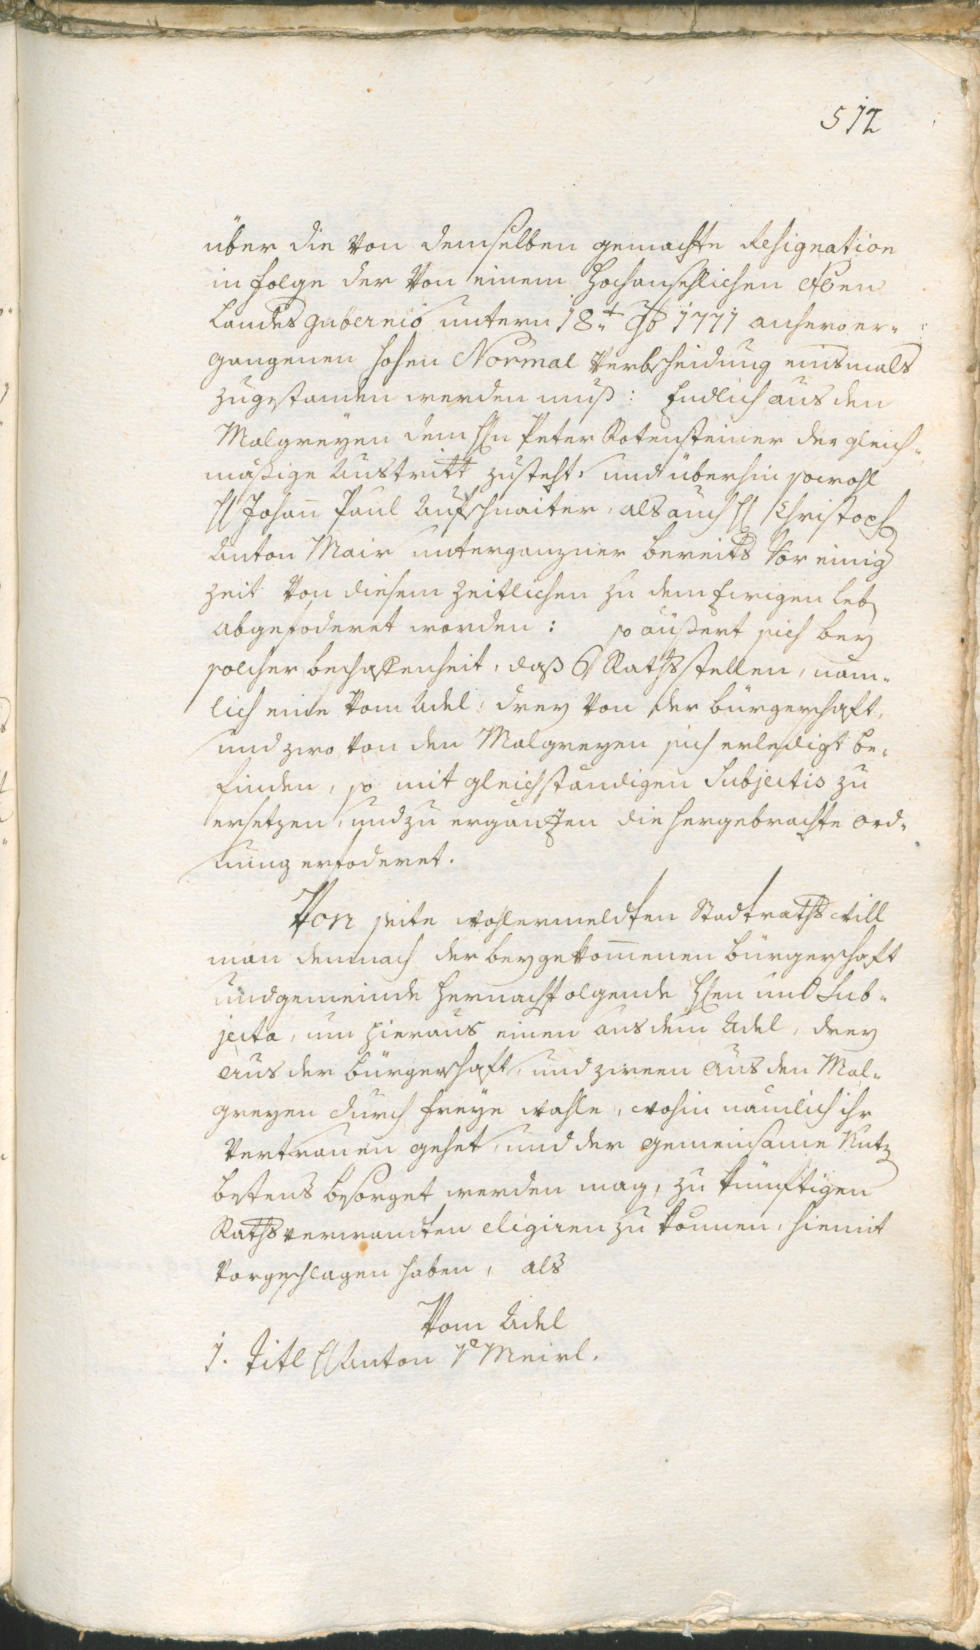 512
über die von demselben gemachte Resignation
in folge der von einem hochansehlichen oö̈en
Landesgubernio unterm 18.t 7b 1771 anhero er-
gangenen hohen Normal Verbscheidung einsmals
zugestanden werden muß: Endlich aus den
Malgreyen dem Hn Peter Rotensteiner der gleich-
mäßige Austritt zusteht, und überhin sowohl
H Johann Paul Aufschnaiter, als auch H Christoph
Anton Mair unterganzner bereits vor einig
zeit von diesem zeitlichen zu dem Ewigen leb
abgefoderet worden: so äußert sich bey
solcher beschaffenheit, daß 6 Rathsstellen, näm-
lich eine vom Adel, drey von der bürgerschaft,
und zwo von den Malgreyen sich erledigt be-
finden, so mit gleichständigen Subjectis zu
ersetzen, und zu ergänzen die hergebrachte ord-
nung erfoderet.
Von seite wohlermeldten Stadtraths will
man demnach der beygekommenen bürgerschaft
und gemeinde hernachfolgende Hen und Sub-
jecta, um hieraus einen aus dem Adel, drey
aus der bürgerschaft, und zween aus den Mal-
greyen durch freye wahle, wohin nämlich ihr
vertrauen gehet, und der gemeinsame Nutz
bestens besorget werden mag, zu künftigen
Rathsverwandten eligiren zu können, hiemit
vorgeschlagen haben, als
Vom Adel
1. Titl H Anton v Meirl.